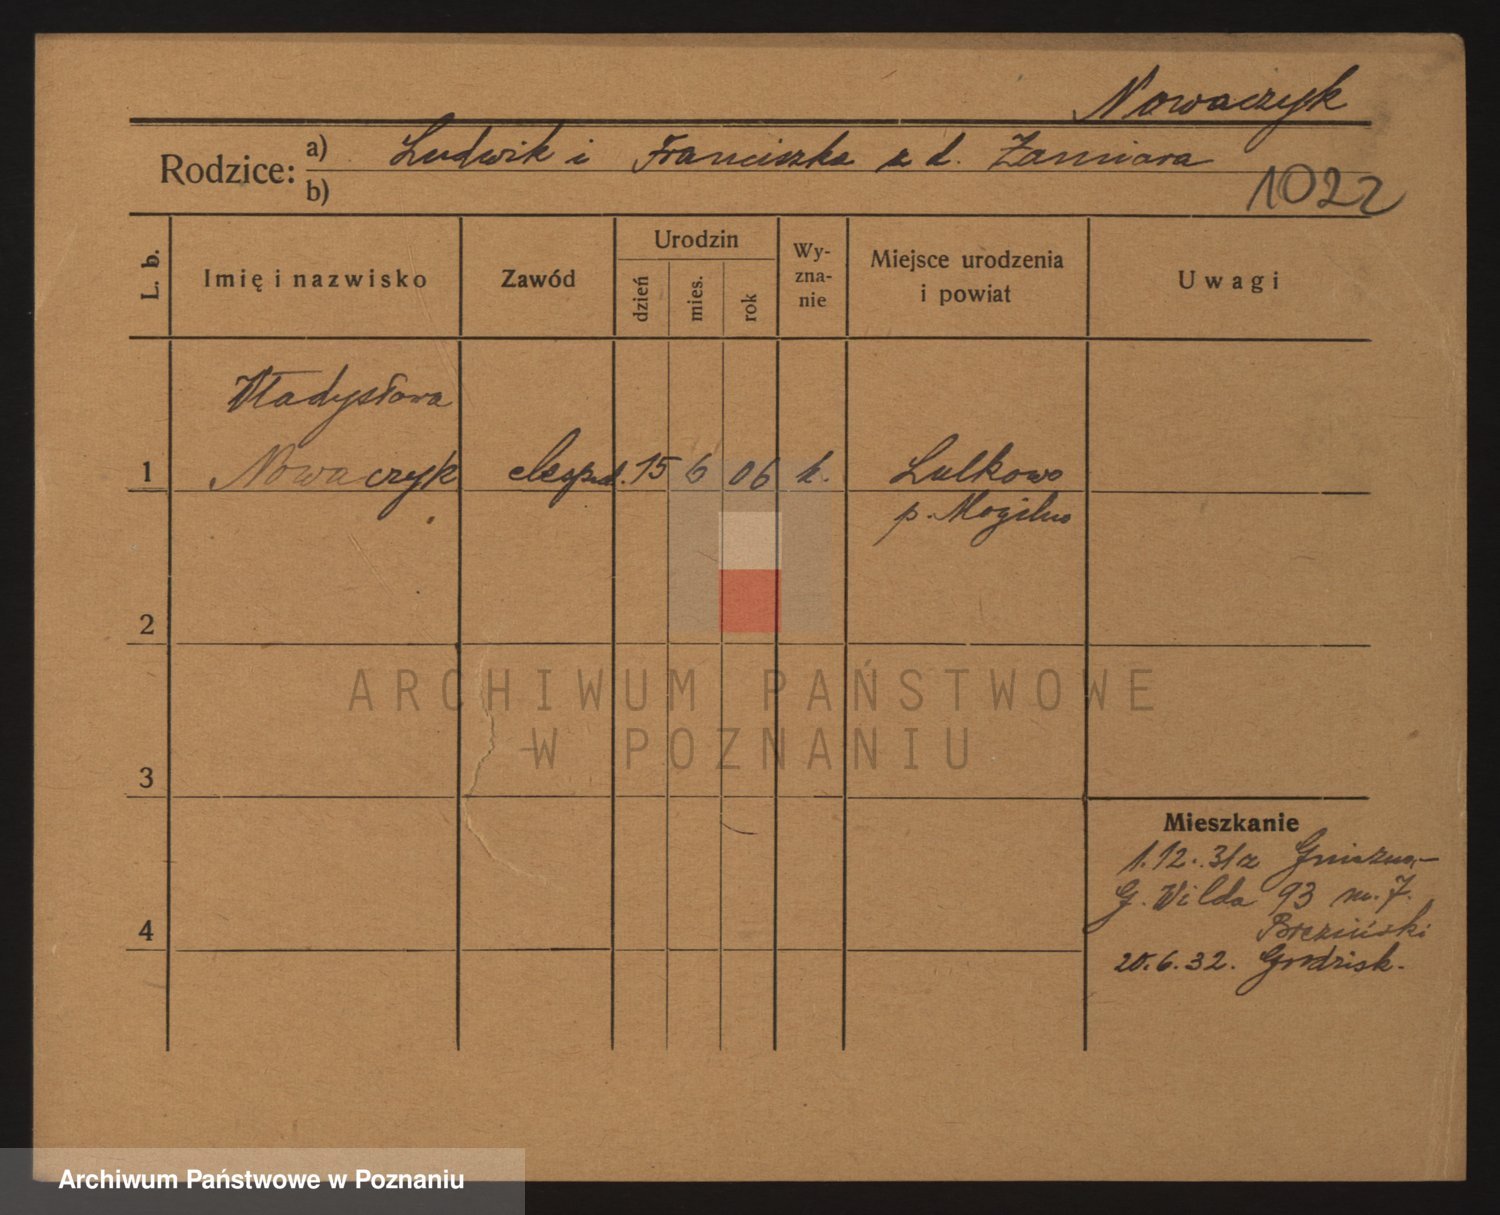 Nowaczyk
Rodzice: a) Ludwik i Franciszka z d. Żamiara
b)
1022
L. b.
Imię i nazwisko
Zawód
Urodzin
dzień
mies.
rok
Wy-
zna-
nie
Miejsce urodzenia
i powiat
Uwagi
Władysława
1 Nowaczyk eksped. 15 6 06 k. Lulkowo
p. Mogilno
2
ARCHIWUM PAŃSTWOWE
W POZNANIU
3
Mieszkanie
1.12.31 z Gniezna,-
G. Wilda 93 m. 7.
4
Brzeziński
20.6.32. Grodzisk.
Archiwum Państwowe w Poznaniu